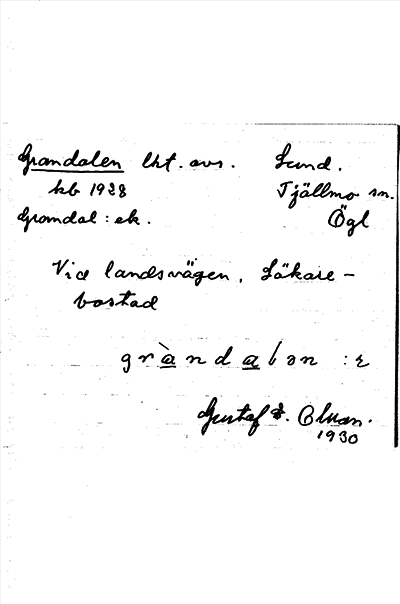 Grandalen lht. avs. Lund.
kb 1928 Tjällmo sn.
Grandal: ek. Ögl
Vid landsvägen. Läkare-
bostad
gràndalən :ɛ
Gustaf
1930